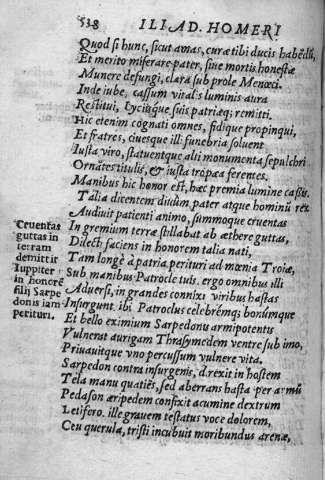 538 ILIAD. HOMERI
Quod si hunc, sicut amas, curæ tibi ducis habẽdũ,
Et merito miserare pater, sive mortis honestæ
Munere defungi, clara sub prole Menœci.
Inde iube, cassum vitalis luminis aura
Restitui, Lyciisque suis patriæq; remitti.
Hic etenim cognati omnes, fidique propinqui,
Et fratres, ciuesque illi funebria soluent
Iusta viro, statuentque alti monumenta sepulchri
Ornãtes titulis, & iusta tropæa ferentes.
Manibus hic honor est, hæc premia lumine cassis.
Talia dicentem diuûm pater atque hominũ rex
Audiuit patienti animo, summoque cruentas
In gremium terræ stillabat ab æthere guttas,
Dilecti faciens in honorem talia nati,
Tam longè à patria perituri ad mœnia Troiæ,
Sub manibus Patrocle tuis. ergo omnibus illi
Aduersi, in grandes connixi viribus hastas
Insurgunt. ibi Patroclus celebrẽmq; bonũmque
Et bello eximium Sarpedonis armipotentis
Vulnerat aurigam Thrasymedem ventre sub imo,
Priuauitque vno percussum vulnere vita.
Sarpedon contra insurgens, direxit in hostem
Tela manu quatiẽs, sed aberrans hasta per armũ
Pedason æripedem confixit acumine dextrum
Letifero. ille grauem testatus voce dolorem,
Ceu querula, tristi incubuit moribundus arenæ,
Cruentas
guttas in
terram
demittit
Iuppiter
in honorẽ
filij Sarpe
donis iam
perituri.